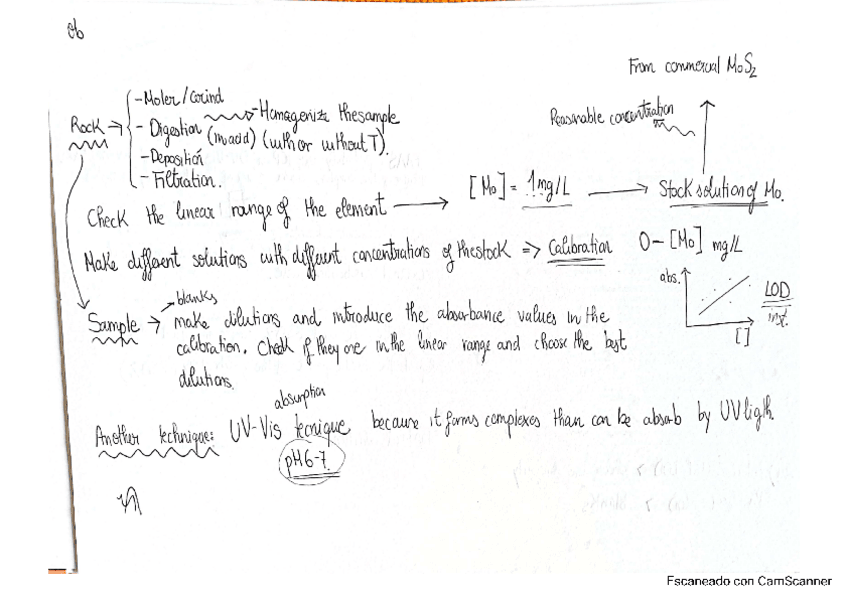 From commercial MoS2
Reasonable concentration
Rock → - Moler / Grind
- Digestion (in acid) (with or without T).
- Homogenize the sample
- Deposition
- Filtration.
Check the linear range of the element → [Mo] = 1 mg/L → Stock solution of Mo.
Make different solutions with different concentrations of the stock => Calibration 0 - [Mo] mg/L
abs.
LOD
inst.
[ ]
blanks
Sample → make dilutions and introduce the absorbance values in the
calibration. Check if they are in the linear range and choose the best
dilutions.
absorption
Another technique: UV-Vis tecnique because it forms complexes than can be absorb by UV ligth
pH 6-7
Escaneado con CamScanner